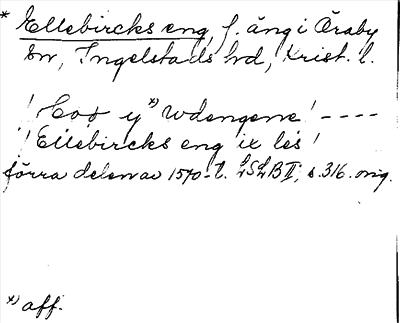 * Ellebircks eng, f. äng i Öraby
sn, Ingelstads hd, Krist. l.
! Coo y *) wdengene! ----
! Ellebircks eng ix les!
förra delen av 1570-t. LSLB II, s. 316. orig.
*) aff.